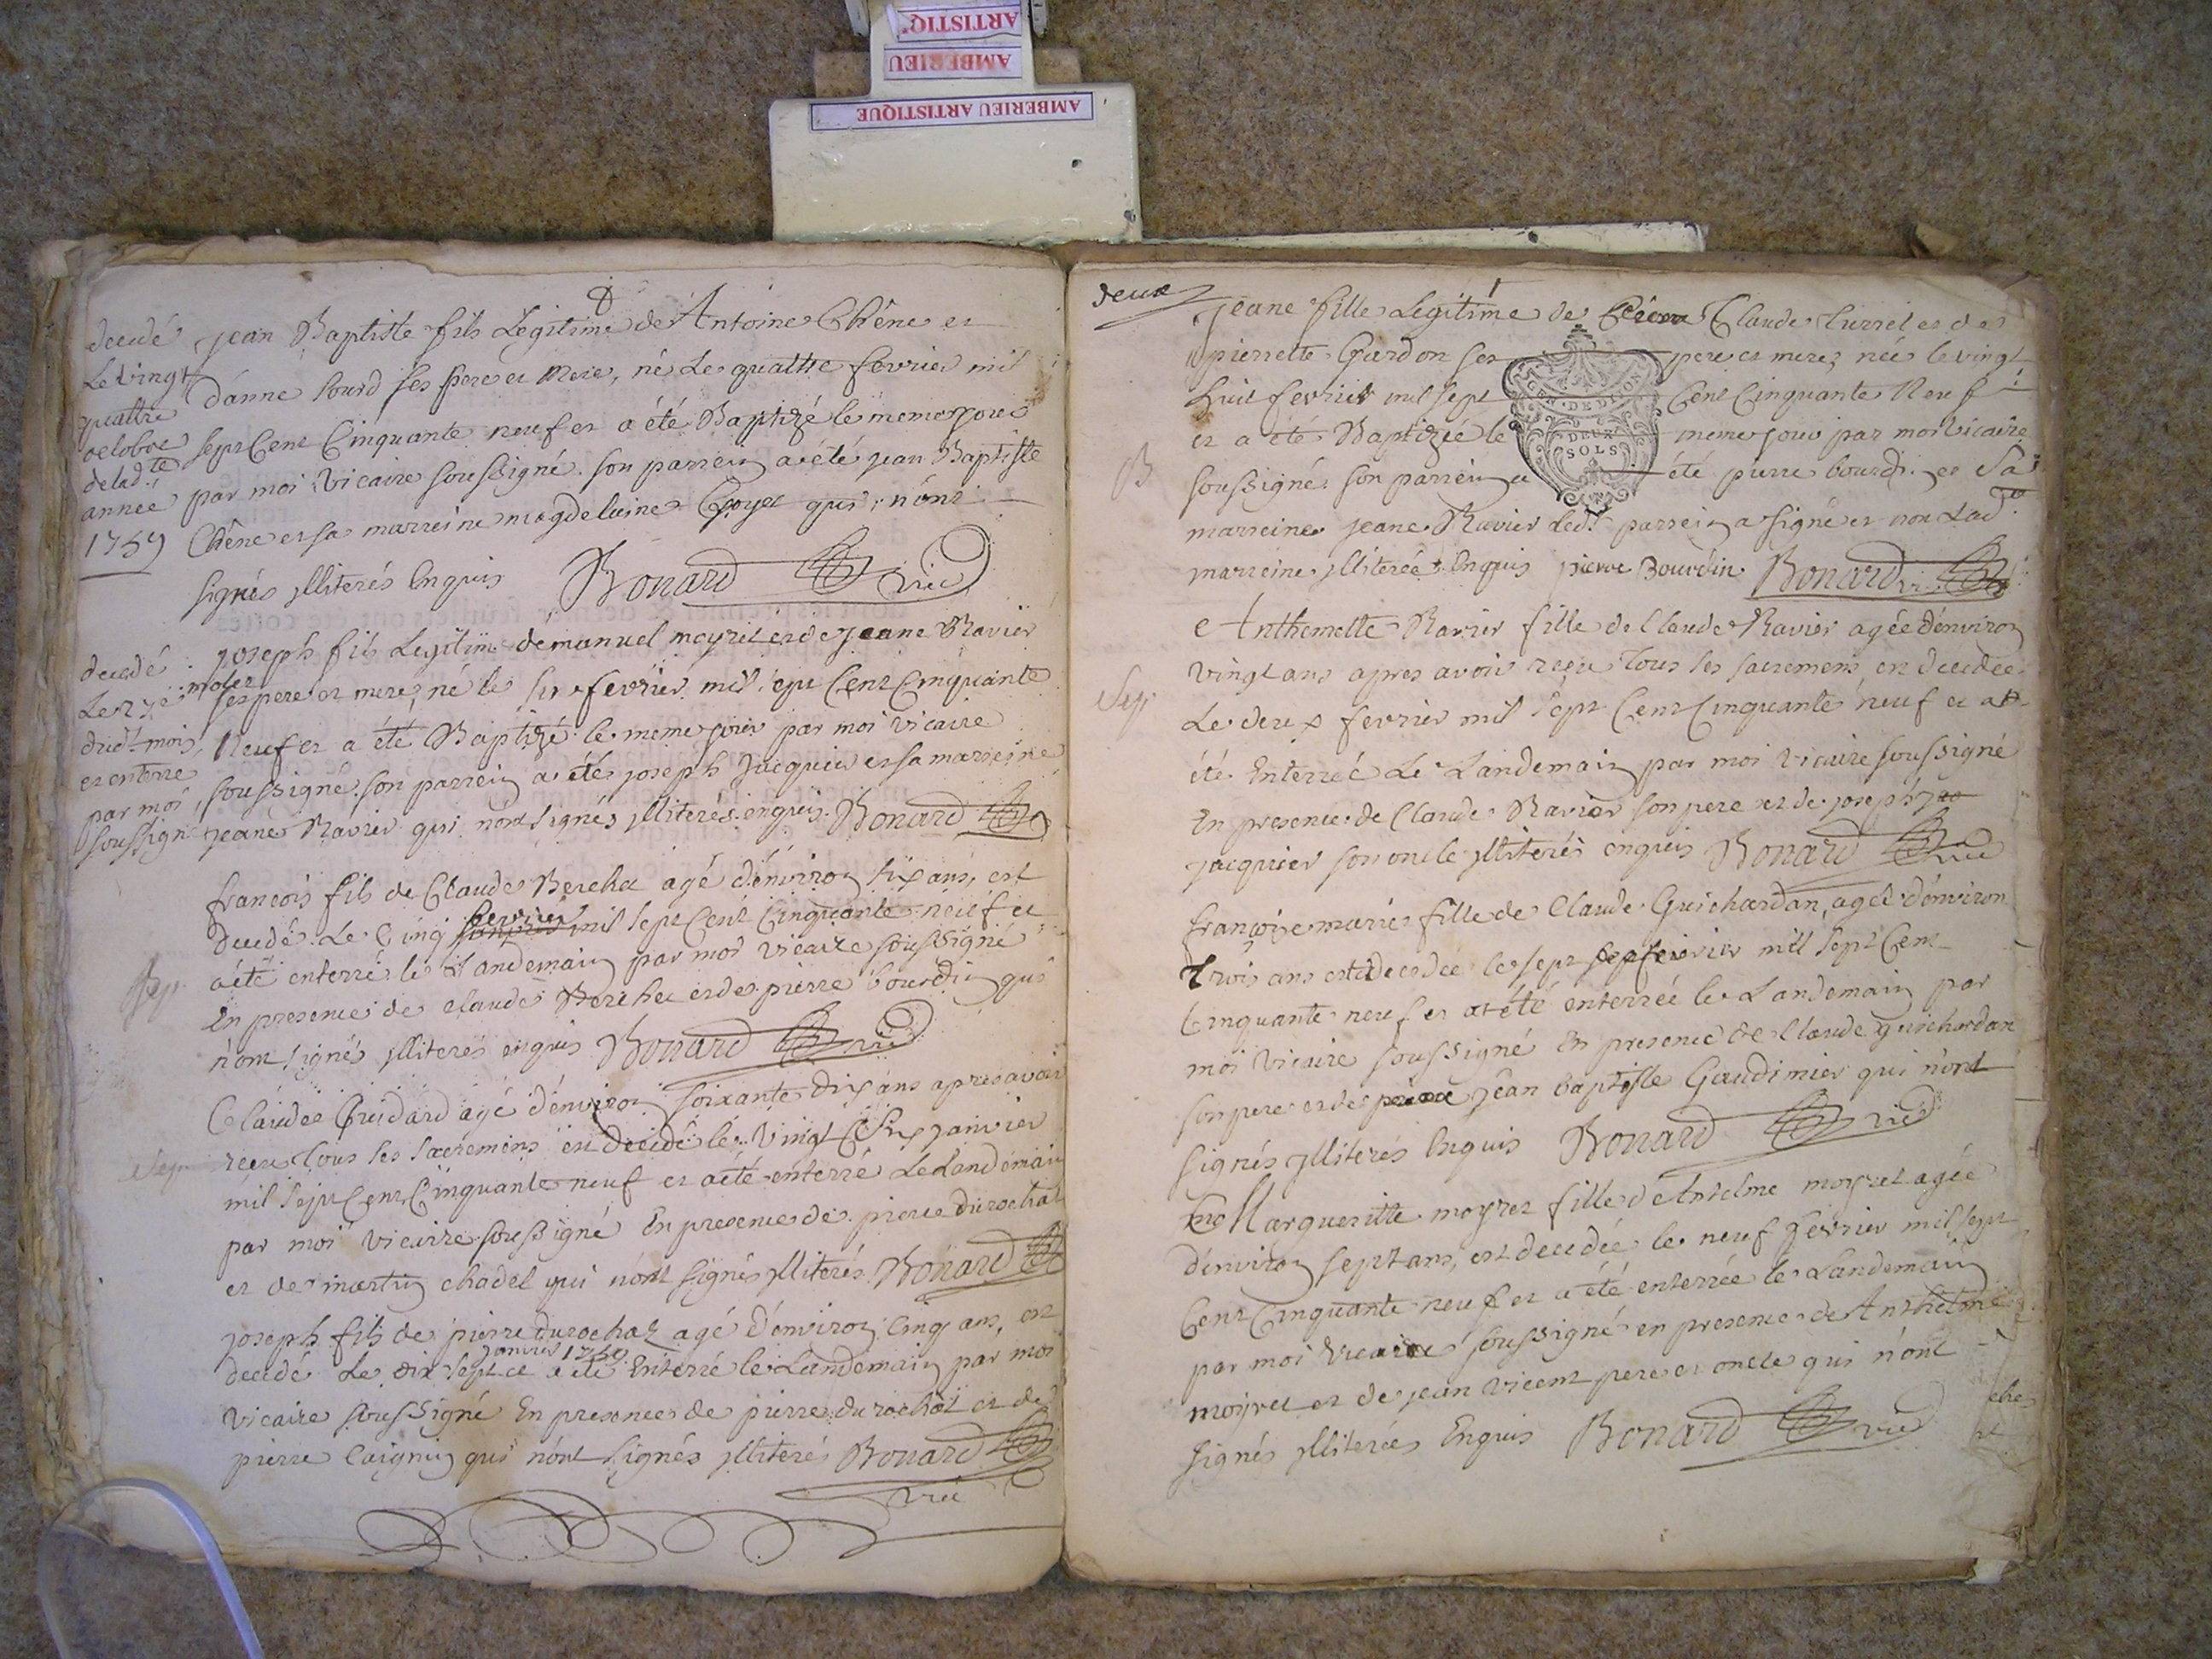 ARTISTIQ
AMBERIEU
AMBERIEU ARTISTIQUE
decedé
Le vingt
quattre
octobre
de lad.te
année
1759
jean Baptiste fils Legitime de Antoine Chêne et
d'anne sourd ses pere et mere, né le quattre fevrier mil
sept Cent Cinquante neuf et a été Baptizé le meme jour
par moi vicaire soussigné. son parrein a été jean Baptiste
Chêne et sa marreine magdeleine qui n'ont
signés jlliterés Enquis Bonard vic
decedé
dudt mois
et enterré
par moi
soussigné
joseph fils Legitime d'émanuel moyret et de jeane Ravier
ses pere et mere, né le six fevrier mil sept Cent Cinquante
Neuf et a été Baptizé le meme jour par moi vicaire
soussigné. son parrein a été joseph jacquier et sa marreine
jeane Ravier qui n'ont signés jlliterés enquis. Bonard
francois fils de Claude Berchet agé d'environ six ans, est
decedé Le Cinq fevrier mil sept Cent Cinquante neuf et
a été enterré le Landemain par moi vicaire soussigné
En presence de claude Berchet et de pierre bourdin qui
n'ont signés jlliterés enquis Bonard vic
Sep.
Claude Guidard agé d'environ soixante dix ans apres avoir
receu tous ses sacremens est decedé le vingt Six janvier
mil sept Cent Cinquante neuf et a été enterré Le Landemain
par moi vicaire soussigné En presence de pierre durochat
et de martin chadel qui n'ont signés jlliterés Bonard
Sep.
joseph fils de pierre durochat agé d'environ Cinq ans, est
janvier 1759
decedé Le dix sept et a été Enterré le Landemain par moi
vicaire soussigné En presence de pierre durochat et de
pierre Caignin qui n'ont signés jlliterés Bonard
vic
deux
jeane fille Legitime de Claude turrel et de
pierrette Guerdon ses pere et mere, née le vingt
huit fevrier mil sept Cent Cinquante Neuf
et a été Baptizée le meme jour par moi vicaire
soussigné. son parrein a été pierre bourdin et Sa
marreine jeane Ravier Led.t parrein a signé et non Lad.te
marreine jlliterée Enquis pierre Bourdin Bonard vic
DE DIJON
DEUX
SOLS
B
Anthemette Ravier fille de Claude Ravier agée d'environ
vingt ans apres avoir reçu tous ses sacremens est decedée
Le deux fevrier mil sept Cent Cinquante neuf et a
été Enterrée Le Landemain par moi vicaire soussigné
En presence de Claude Ravier son pere et de joseph
jacquier son oncle jlliterés enquis Bonard vic
Sep.
françoise marie fille de Claude Guichardan, agée d'environ
trois ans est decedée le sept fevrier mil sept Cent
Cinquante neuf et a été enterrée le Landemain par
moi vicaire soussigné En presence de Claude guichardan
son pere et de jean baptiste Gaudimier qui n'ont
signés jlliterés Enquis Bonard vic
Margueritte moyret fille d'Antelme moyret agée
d'environ sept ans, est decedée le neuf fevrier mil sept
Cent Cinquante neuf et a été enterrée le Landemain
par moi vicaire soussigné en presence de Anthelme
moyret et de jean vicent pere et oncle qui n'ont
signés jlliterés Enquis Bonard vic